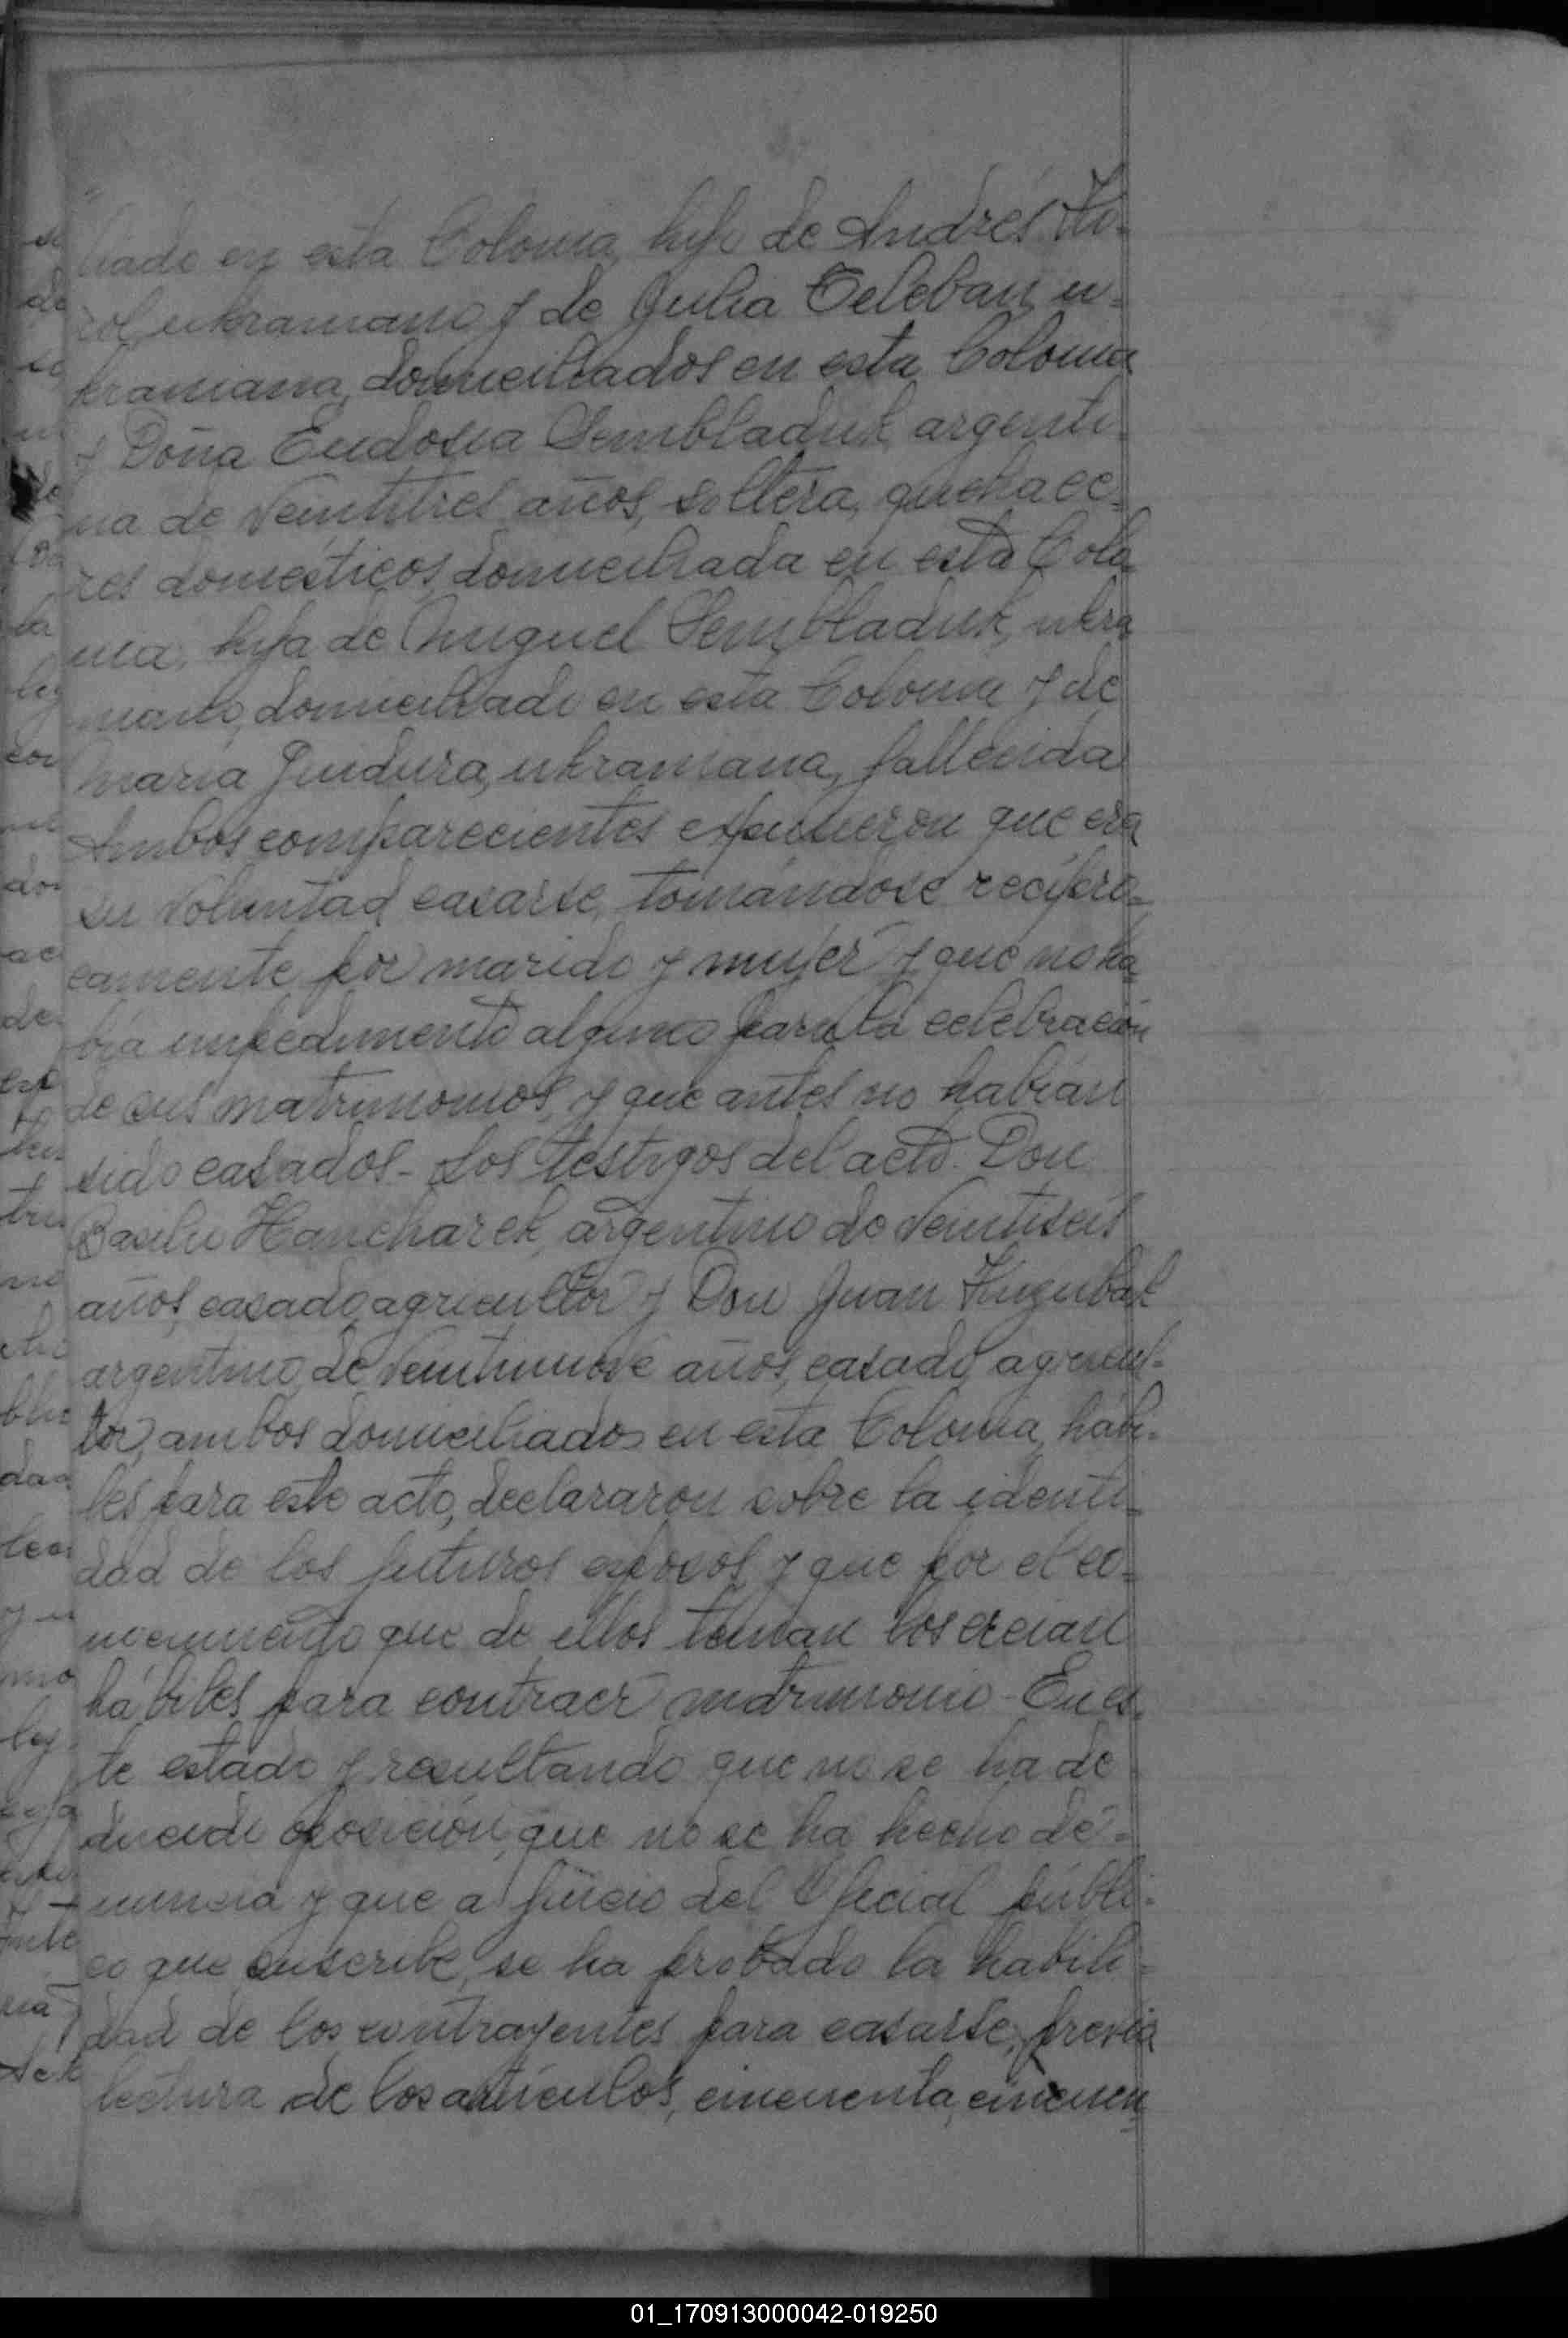 liado en esta Colonia, hijo de Andrés Ki-
rol, ukraniano y de Julia Teleban, u-
kraniana, domiciliados en esta Colonia
y Doña Eudosia Sembladuk, argenti-
na de veintitres años, soltera, quehace-
res domésticos, domiciliada en esta Colo-
nia, hija de Miguel Sembladuk, ukra
niano, domiciliado en esta Colonia y de
Maria Jindura, ukraniana, fallecida
Ambos comparecientes expusieron que era
su voluntad casarse, tomándose recipro-
camente por marido y mujer y que no ha
bia impedimento alguno para la celebración
de sus matrimonios, y que antes no habian
sido casados - Los testigos del acto Don
Basilio Hancharek, argentino de veintiseis
años, casado, agricultor y Don Juan
argentino, de veintinueve años, casado, agricul-
tor, ambos domiciliados en esta Colonia, hábi-
les para este acto, declararon sobre la identi-
dad de los futuros esposos y que por el co-
nocimiento que de ellos tenian los creian
hábiles para contraer matrimonio - En es-
te estado y resultando que no se ha de
ducido oposición, que no se ha hecho de-
nuncia y que a juicio del Oficial públi-
co que suscribe, se ha probado la habili-
dad de los contrayentes para casarse, previa
lectura de los artículos, cincuenta, cincuen
01_170913000042-019250